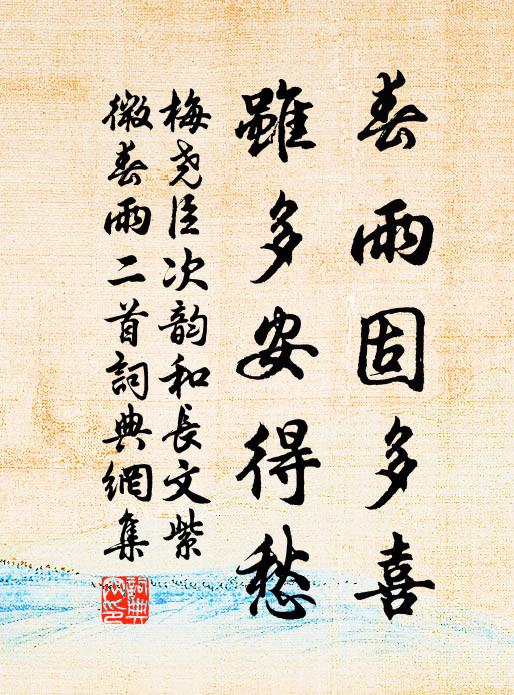 春雨固多喜
雖多安得愁
梅堯臣次韵和長文紫
微春雨二首詞典網集